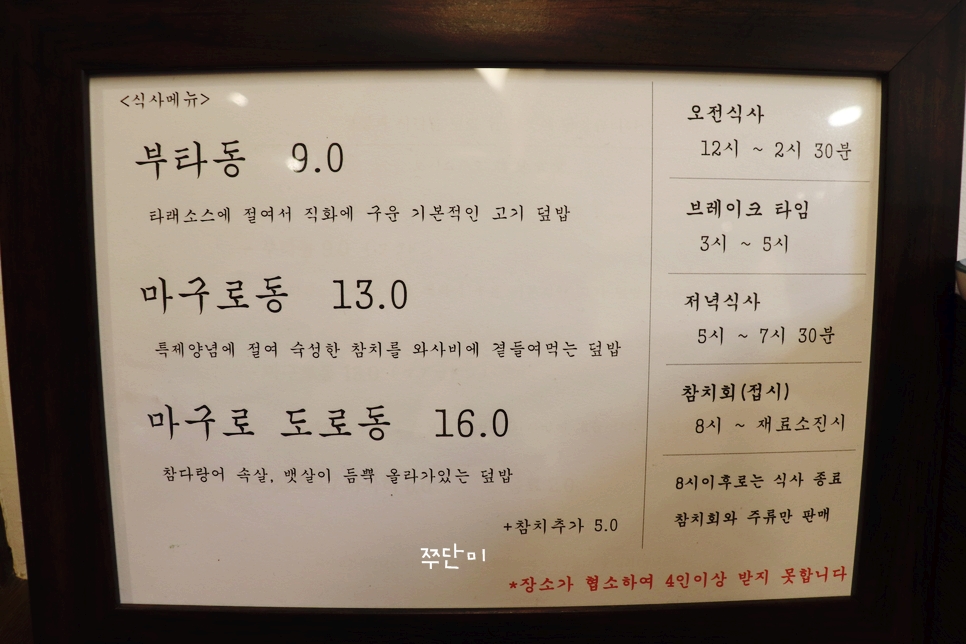 <식사메뉴>
부타동 9.0
타래소스에 절여서 직화에 구운 기본적인 고기 덮밥
마구로동 13.0
특제양념에 절여 숙성한 참치를 와사비에 곁들여먹는 덮밥
마구로 도로동 16.0
참다랑어 속살, 뱃살이 듬뿍 올라가있는 덮밥
+참치추가 5.0
오전식사
12시 ~ 2시 30분
브레이크 타임
3시 ~ 5시
저녁식사
5시 ~ 7시 30분
참치회(접시)
8시 ~ 재료소진시
8시이후로는 식사 종료
참치회와 주류만 판매
*장소가 협소하여 4인이상 받지 못합니다
쭈단미